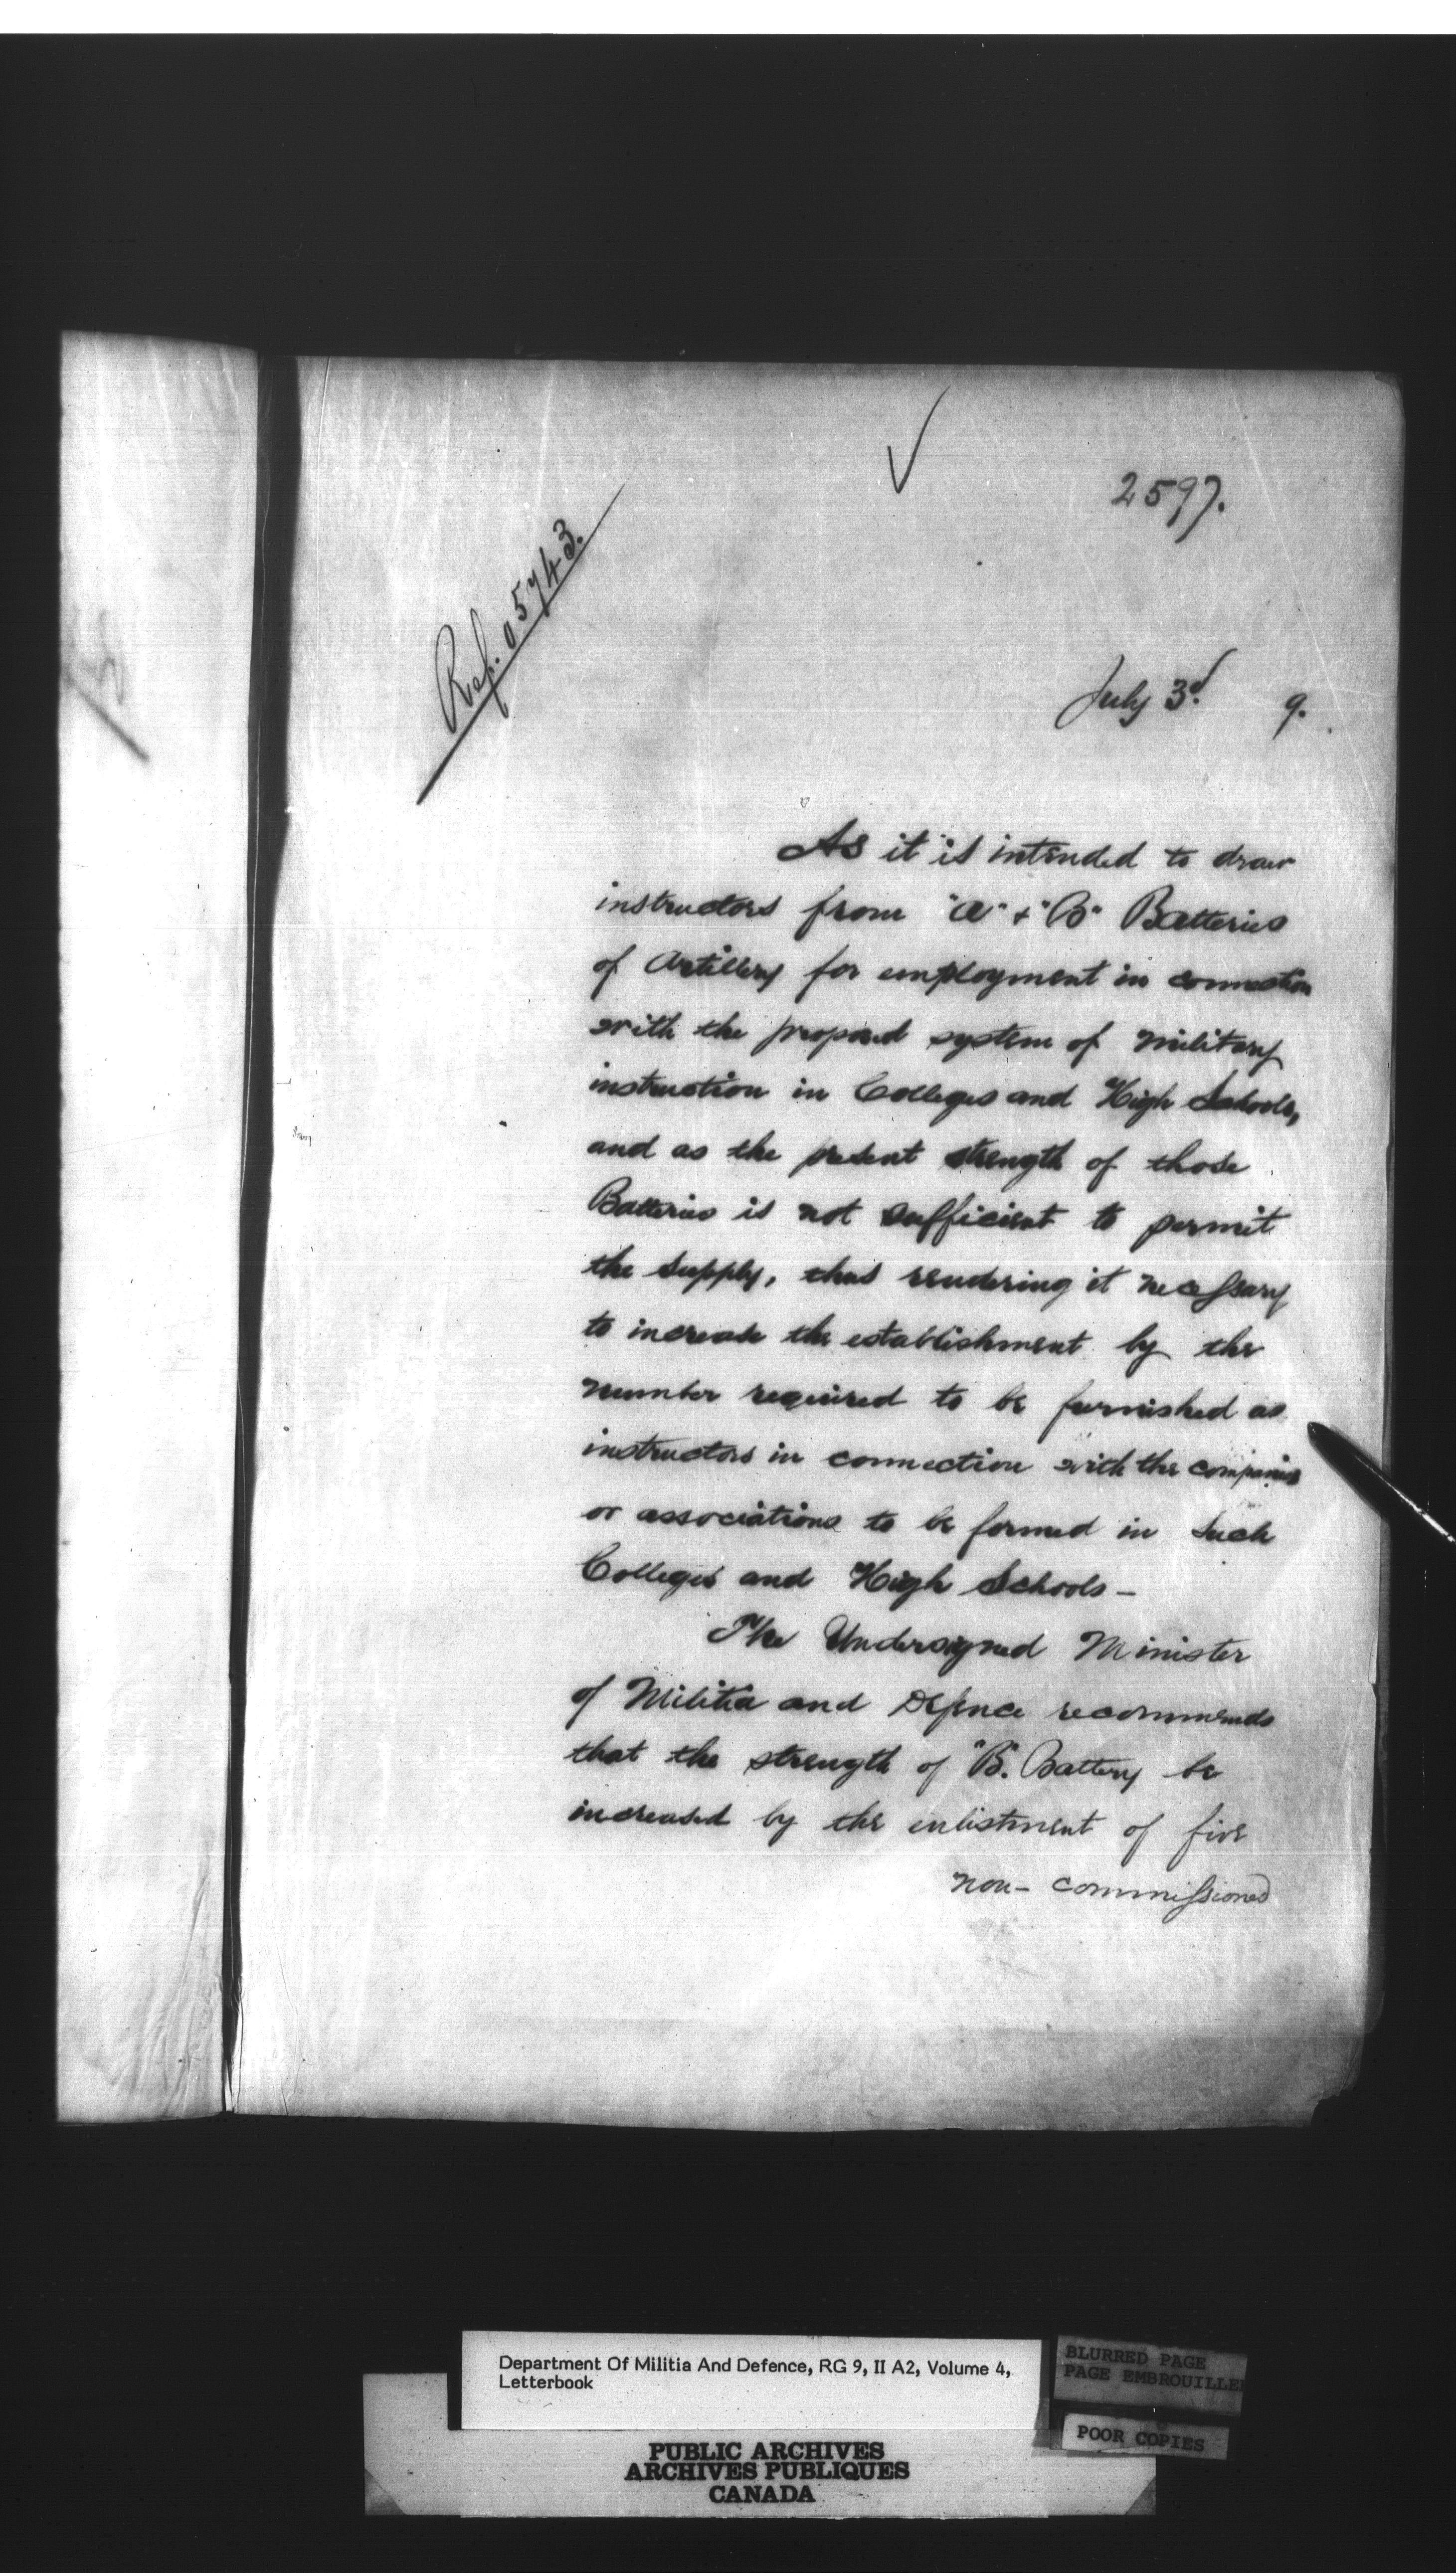 2597.
Ref. 05743.
July 3d. 9.
As it is intended to draw
instructors from "A" & "B" Batteries
of Artillery for employment in connection
with the proposed system of Military
instruction in Colleges and High Schools,
and as the present strength of those
Batteries is not sufficient to permit
the supply, thus rendering it necessary
to increase the establishment by the
number required to be furnished as
instructors in connection with the companies
or associations to be formed in such
Colleges and High Schools —
The Undersigned Minister
of Militia and Defence recommends
that the strength of "B". Battery be
increased by the enlistment of five
non- commissioned
Department Of Militia And Defence, RG 9, II A2, Volume 4,
Letterbook
BLURRED PAGE
PAGE EMBROUILLEE
POOR COPIES
PUBLIC ARCHIVES
ARCHIVES PUBLIQUES
CANADA